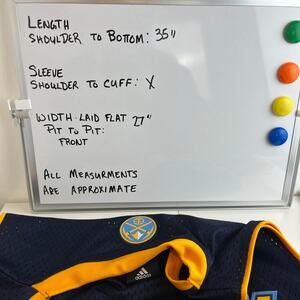 LENGTH
SHOULDER TO BOTTOM: 35"
SLEEVE
SHOULDER TO CUFF: X
WIDTH LAID FLAT 27"
PIT TO PIT:
FRONT
ALL MEASURMENTS
ARE APPROXIMATE
adidas